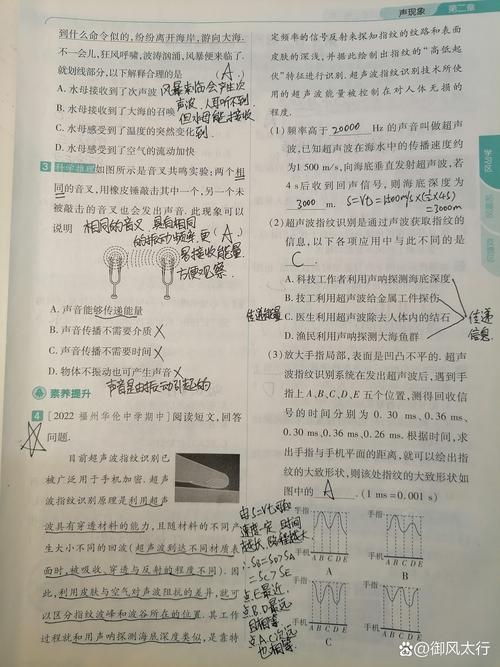 声现象 第二章
到什么命令似的，纷纷离开海岸，游向大海.
不一会儿，狂风呼啸，波涛汹涌，风暴便来临了.
就划线部分，以下解释合理的是 (A)
A. 水母接收到了次声波 风暴来临会产生次
声波，人耳听不到
B. 水母接收到了大海的召唤 但水母能接收
到
C. 水母感受到了温度的突然变化
D. 水母感受到了空气的流动加快
3 科学推理 如图所示是音叉共鸣实验：两个相
同的音叉，用橡皮锤敲击其中一个，另一个未
被敲击的音叉也会发出声音. 此现象可以
说明 (A)
相同的音叉 具有相同
的振动频率，更
易接收能量
方便观察
A. 声音能够传递能量
B. 声音传播不需要介质 ×
C. 声音传播不需要时间 ×
D. 物体不振动也可产生声音 ×
声音是由振动引起的
素养提升
4 [2022 福州华伦中学期中] 阅读短文，回答
问题.
目前超声波指纹识别已
被广泛用于手机加密. 超声
波指纹识别原理是利用超声
波具有穿透材料的能力，且随材料的不同产
生大小不同的回波(超声波到达不同材质表
面时，被吸收、穿透与反射的程度不同). 因
此，利用皮肤与空气对声波阻抗的差异，就可
以区分指纹波峰和波谷所在的位置. 其工作
过程就和用声呐探测海底深度类似，是靠特
定频率的信号反射来探知指纹的纹路和表面
皮肤的深浅，并据此绘制出指纹的“高低起
伏”特征进行识别. 超声波指纹识别技术所使
用的超声波能量被控制在对人体无损的
程度.
(1) 频率高于 20000 Hz 的声音叫做超声
波，已知超声波在海水中的传播速度约
为 1 500 m/s，向海底垂直发射超声波，若
4 s 后收到回声信号，则海底深度为
3000 m. S=vt=1500m/s×(½×4s)
=3000m
(2) 超声波指纹识别是通过声波获取指纹的
信息，以下各项应用中与此不同的是
C.
A. 科技工作者利用声呐探测海底深度
B. 技工利用超声波给金属工件探伤
传递能量 C. 医生利用超声波除去人体内的结石
D. 渔民利用声呐探测大海鱼群
传递
信息.
(3) 放大手指局部，表面是凹凸不平的. 超声
波指纹识别系统在发出超声波后，遇到手
指上 A、B、C、D、E 五个位置，测得回收信
号的时间分别为 0. 30 ms、0.36 ms、
0.30 ms、0.36 ms、0.26 ms. 根据时间，求
出手指与手机平面的距离，就可以绘出指
纹的大致形状，则该处指纹的大致形状如
图中的 A . (1 ms=0.001 s)
由S=vt可知
速度一定，时间
越长，路程越大
∴SB=SD>SA
=SC>SE
点E最近
点B、D最远
且相等
点A、C次远
也相等.
手指
手机
A B C D E
A
手指
手机
A B C D E
B
手指
手机
A B C D E
C
手指
手机
A B C D E
D
@御风太行